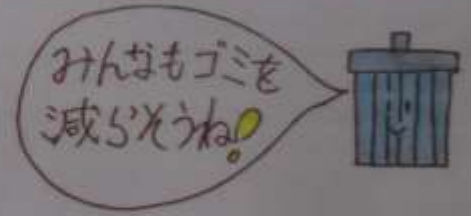 みんなもゴミを
減らそうね!